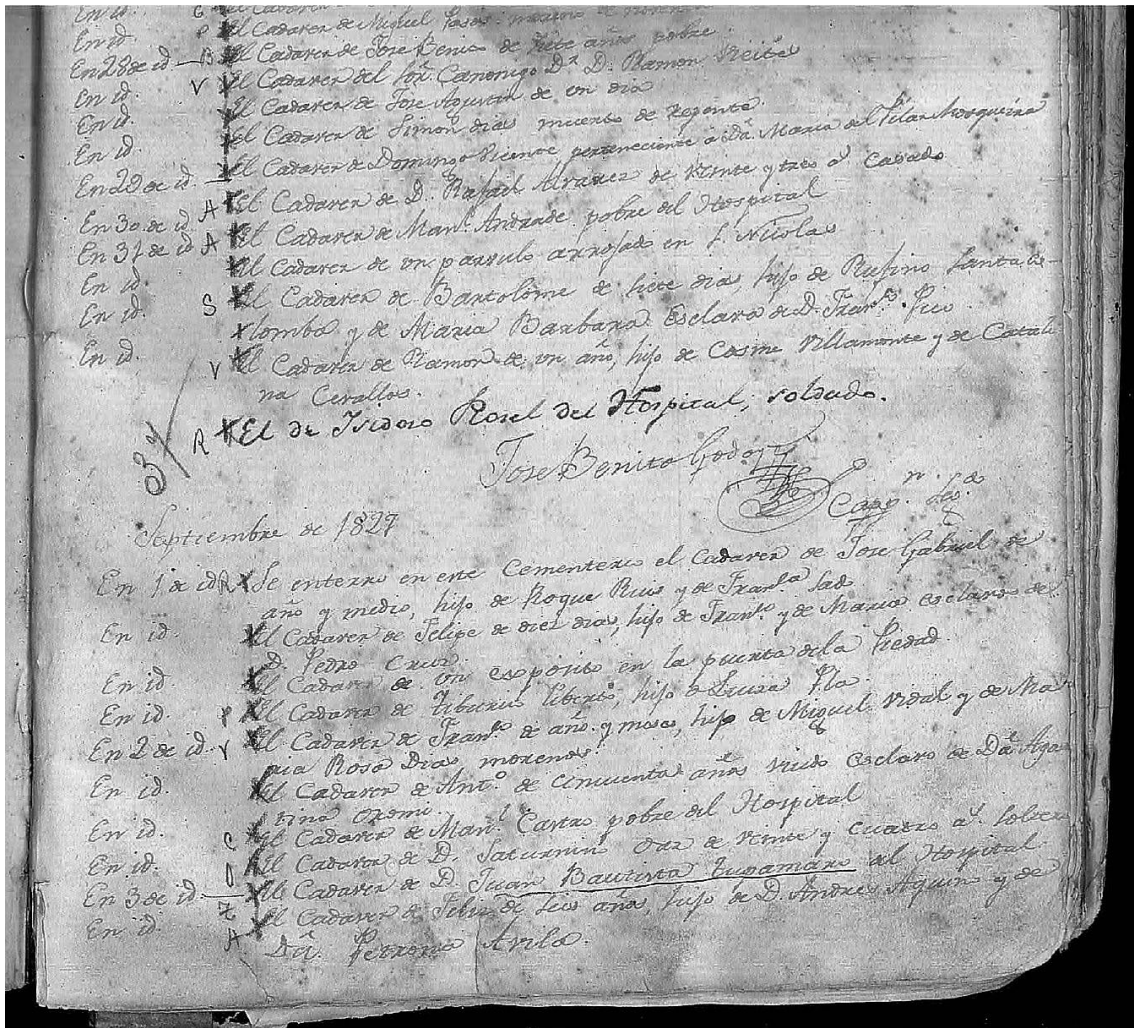 En id. G El Cadaver de
En id. P El Cadaver de Miguel
En 28 de id B El Cadaver de Jose Benito de siete años pobre
En id. V El Cadaver del Sor. Canonigo Dr. D. Ramon Vieites
En id. El Cadaver de Jose Agustin de un dia
En id. El Cadaver de Simon dias muerto de repente.
En 29 de id El Cadaver de Domingo Vicente perteneciente a Da. Maria del Pilar Mosqueira
En 30 de id A El Cadaver de D. Rafael Alvarez de veinte y tres as. Casado
En 31 de id A El Cadaver de Manl. Andrade pobre del Hospital
En id. El Cadaver de un parvulo arrojado en S. Nicolas
En id. S El Cadaver de Bartolome de siete dias, hijo de Rufino Santa Co-
lomba y de Maria Barbara Esclava de D. Franco. Pico
En id. V El Cadaver de Ramon de un año, hijo de Cosme Villamonte y de Catali
na Cevallos.
37 R El de Isidoro Rosel del Hospital, soldado.
Jose Benito Godoy
Capn.
Septiembre de 1827
En 1 de id R Se enterro en este Cementerio el Cadaver de Jose Gabriel de
año y medio, hijo de Roque Rius y de Franca. Sad
En id. El Cadaver de Felipe de diez dias, hijo de Franco. y de Maria esclavos de
D. Pedro Cruz.
En id. El Cadaver de un esposito en la puerta de la Piedad
En id. P El Cadaver de Tiburcio liberto, hijo de Luisa Pla
En 2 de id. V El Cadaver de Franco. de año y meses, hijo de Miguel Vidal y de Ma
ria Rosa Dias morenos
En id. El Cadaver de Anto. de cincuenta años viudo esclavo de Da. Agus
tina
En id. C El Cadaver de Manl. Castro pobre del Hospital
En id. D El Cadaver de D. Saturnino Diaz de veinte y cuatro as. soltero
En 3 de id T El Cadaver de D. Juan Bautista Tupamaro del Hospital.
En id. A El Cadaver de Felix de seis años, hijo de D. Andres Aquino y de
Da. Petrona Avila.